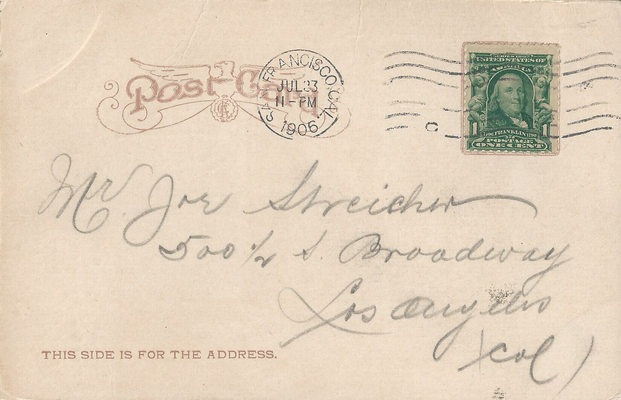 Post Card
SAN FRANCISCO, CAL.
JUL 23
11-PM
1906
UNITED STATES OF
AMERICA
1 FRANKLIN 1
POSTAGE
ONE CENT
Mr. Joe Streicher
500 1/2 S. Broadway
Los Angeles
Cal
THIS SIDE IS FOR THE ADDRESS.